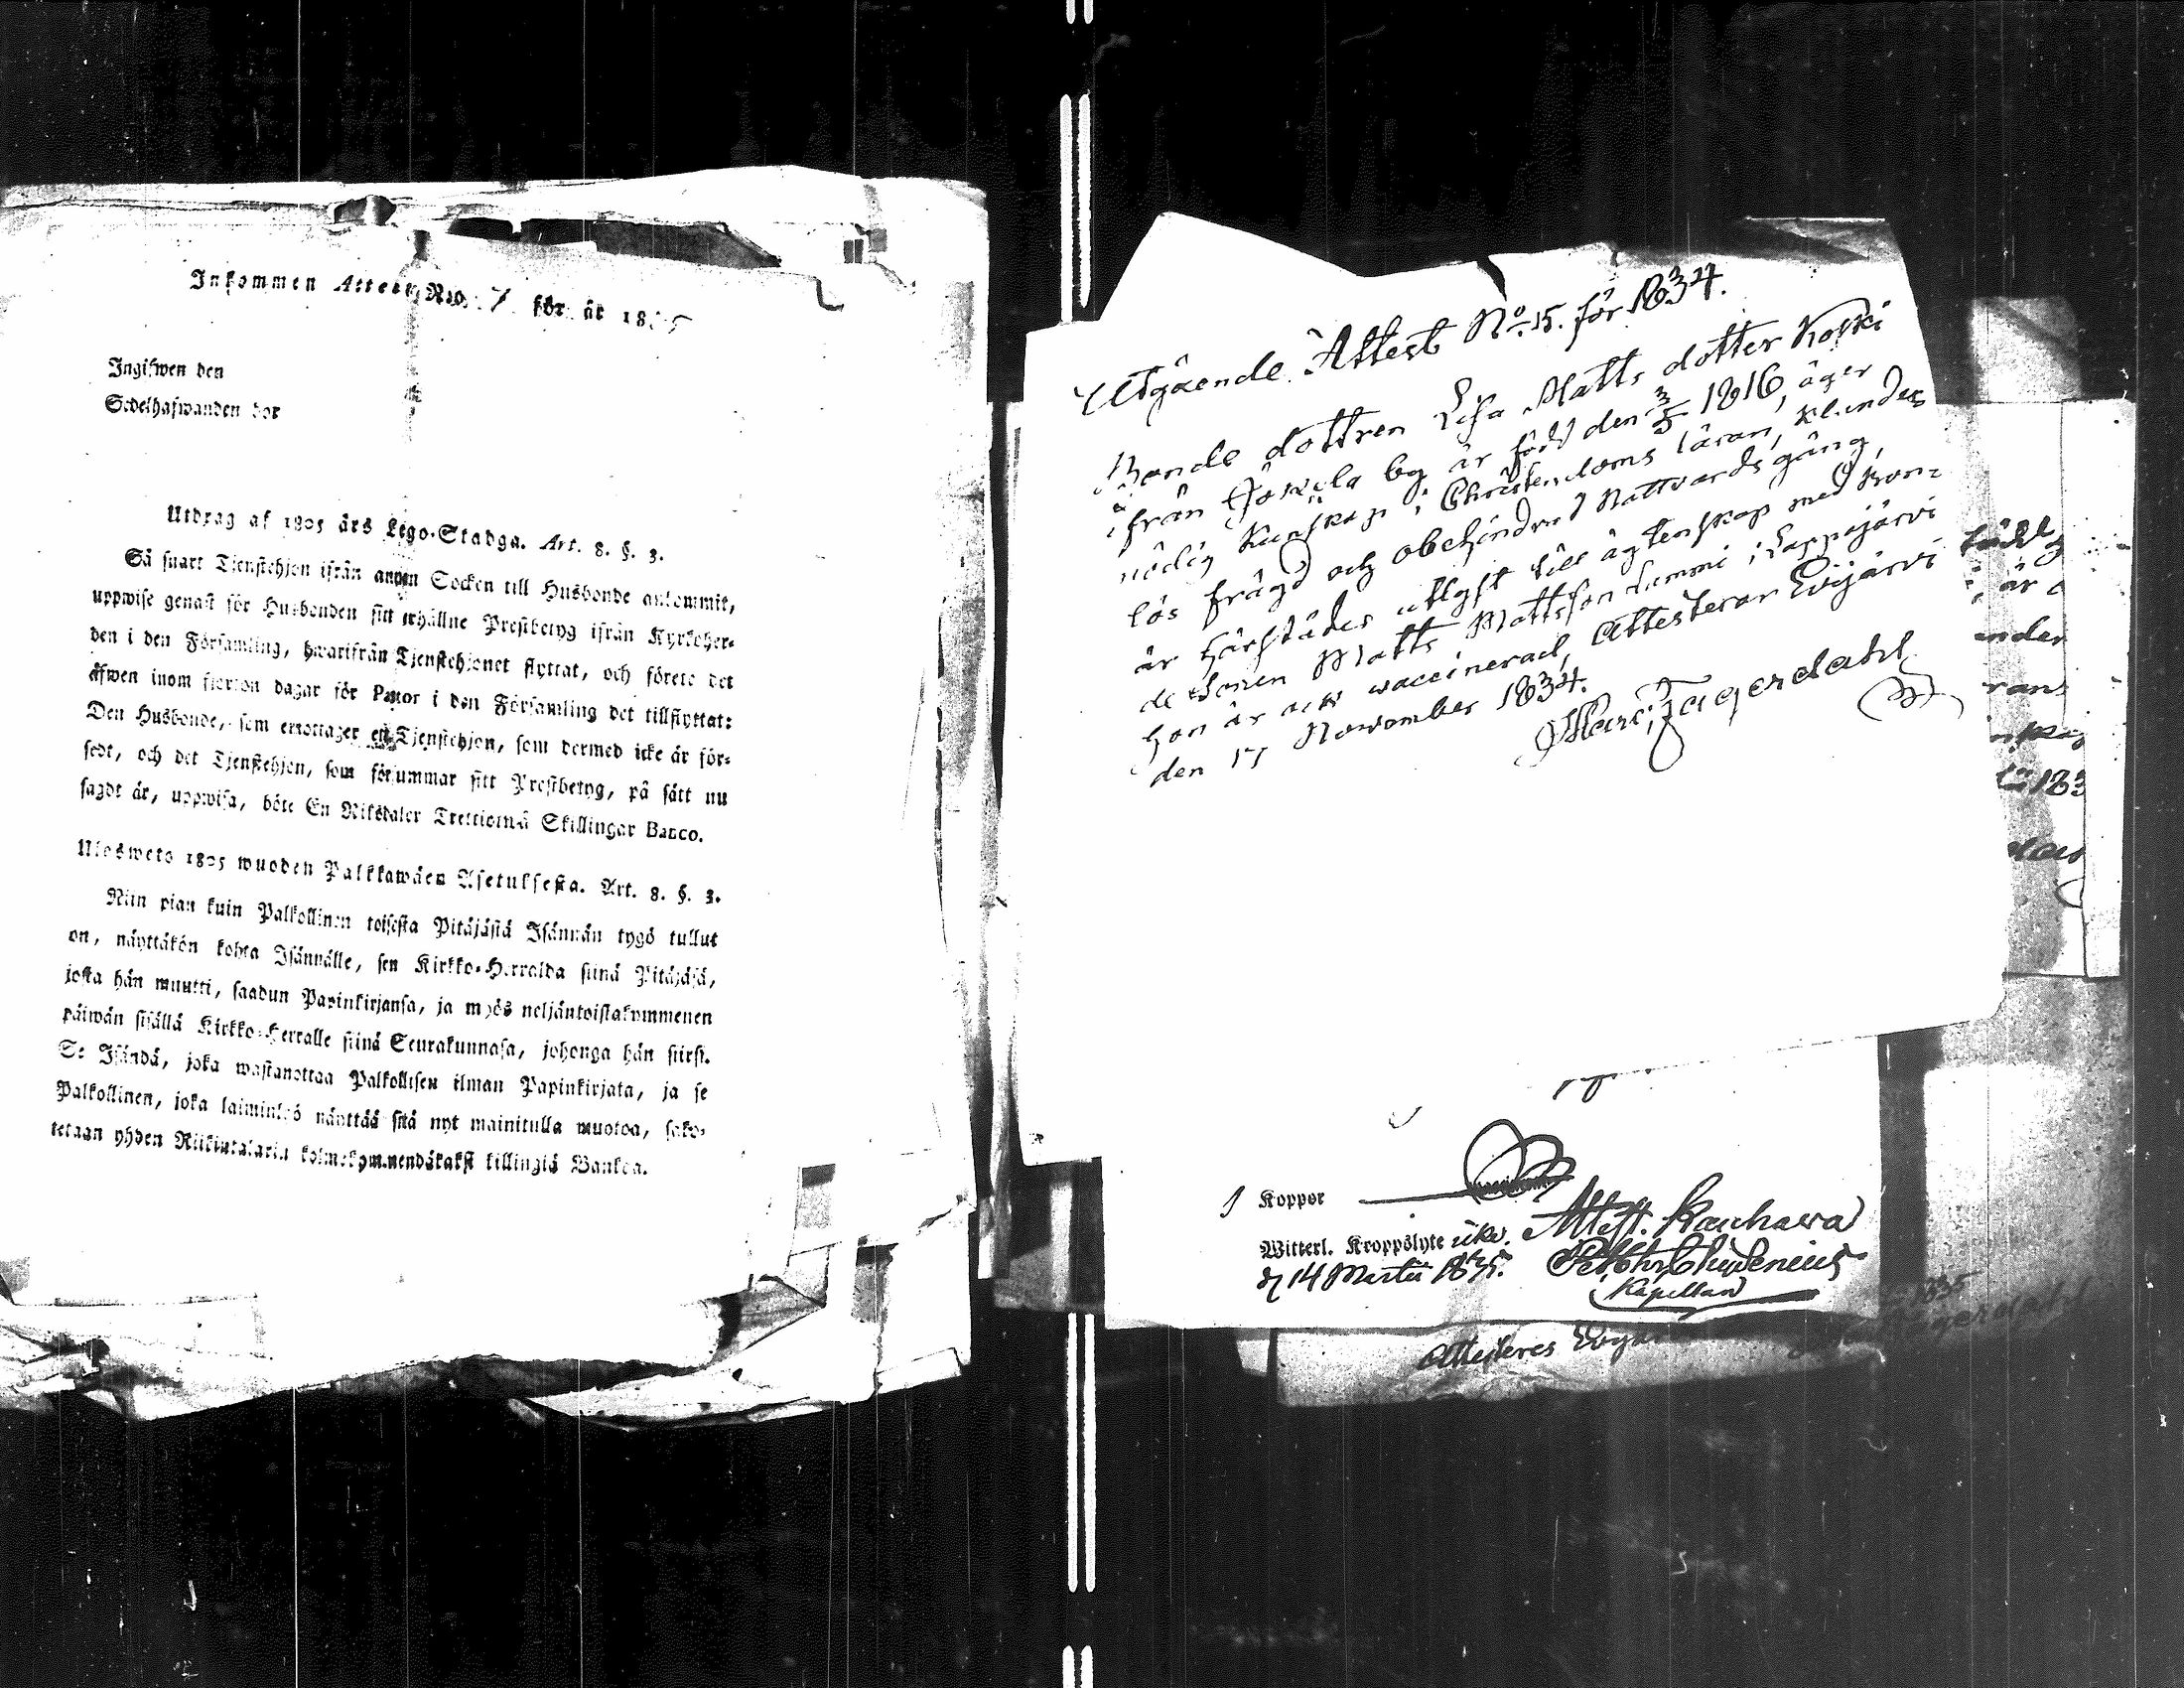 Inkommen Attest No. 7 för år 1835
Ingifwen den
Sedelhafwanden bor
Utdrag af 1805 års Lego-Stadga. Art. 8. §. 3.
Så snart Tjenstehjon ifrån annan Socken till Husbonde ankommit,
uppwise genast för Husbonden sitt erhållne Prestbetyg ifrån Kyrkoher-
den i den Församling, hwarifrån Tjenstehjonet flyttat, och förete det
äfwen inom fjorton dagar för Pastor i den Församling det tillflyttat:
Den Husbonde, som emottager ett Tjenstehjon, som dermed icke är för-
sedt, och det Tjenstehjon, som försummar sitt Prestbetyg, på sätt nu
sagdt är, uppwisa, böte En Riksdaler Trettiotwå Skillingar Banco.
Ulosweto 1805 wuoden Palkkawäen Asetuksesta. Art. 8. §. 3.
Niin pian kuin Palkollinen toisesta Pitäjästä Isännän tygö tullut
on, näyttäkön kohta Isännälle, sen Kirkko-Herralda siinä Pitäjäsä,
josta hän muutti, saadun Papinkirjansa, ja myös neljäntoistakymmenen
päiwän sisällä Kirkko-Herralle siinä Seurakunnasa, johonga hän siirsi.
Se Isändä, joka wastanottaa Palkollisen ilman Papinkirjata, ja se
Palkollinen, joka laiminlyö näyttää sitä nyt mainitulla muotoa, sako-
tetaan yhden Riikintalarin kolmekymmendäkaksi killingiä Bankoa.
Utgående Attest No. 15. för 1834.
Bonde dottren Lisa Matts dotter Koski
ifrån Jokela by är född den 3/5 1816, äger
nödig kunskap i Christendoms läran, klander
lös frägd och obehindrad Nattvards gång,
är härstädes utlyst till ägtenskap med Bon-
de Sonen Matts Mattsson Lammi i Lappajärvi
hon är ock vaccinerad, attesterar Evijärvi
den 17 November 1834.
Mart: Fagerdahl
född
är
ander
rans
183
Koppor
Witterl. Kroppslyte icke. Attest. Kauhava
d 14 Martii 1835. Pet. Chr. Chydenius
Kapellan
1835
Attesteres Evijär Fagerdahl